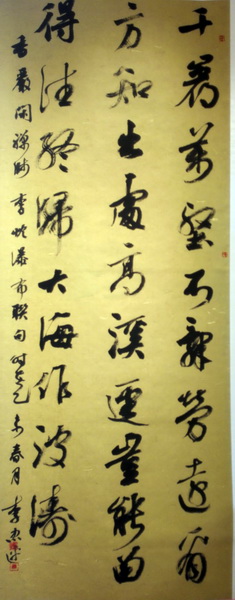 千岩萬壑不辭勞遠看
方知出處高溪澗豈能留
得住終歸大海作波濤
香嚴閑禪師李忱瀑布聯句時在乙未春月李